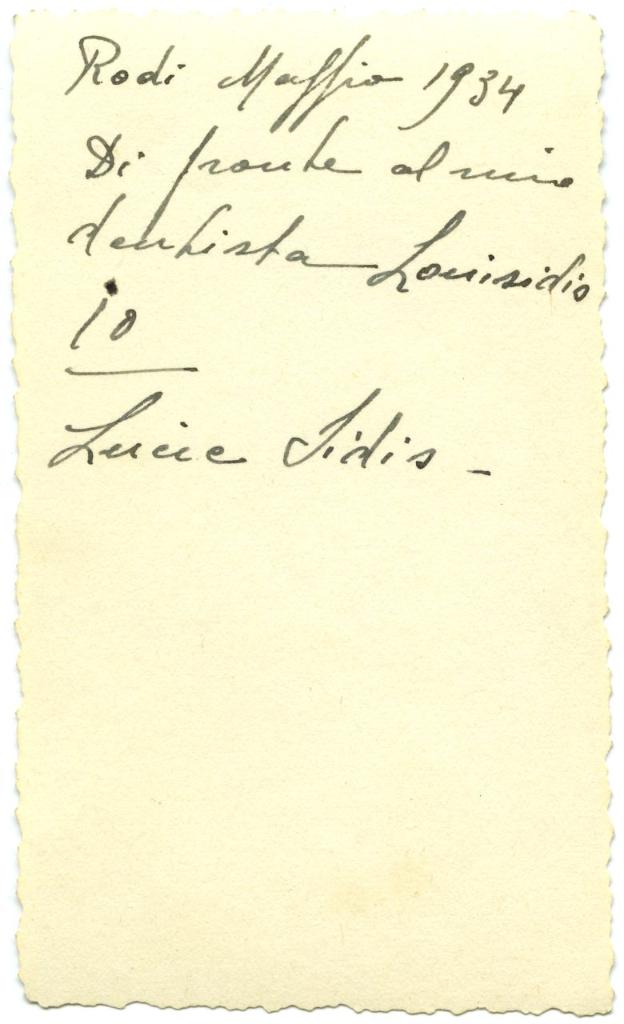 Rodi Maggio 1934
Di fronte al mio
dentista Louisidis
10
Lucie Sidis -